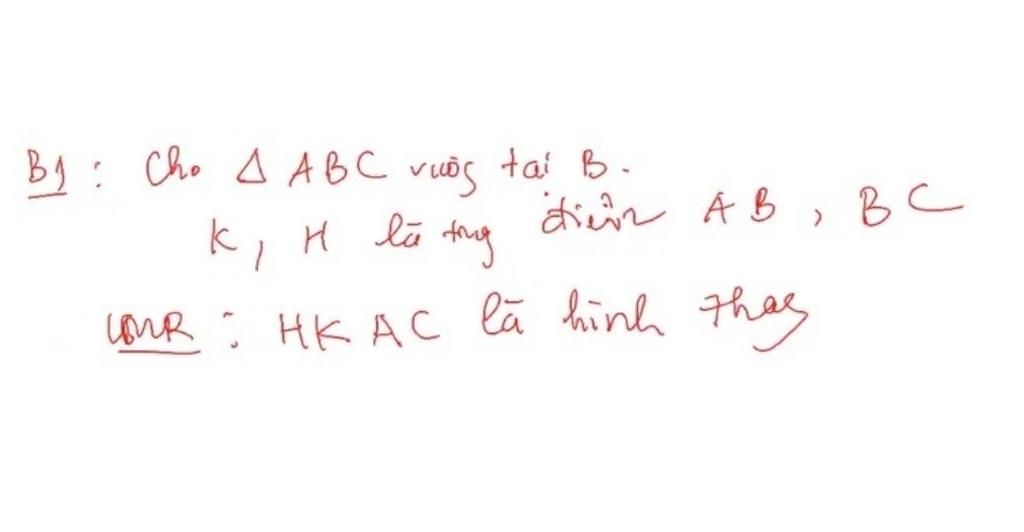 B1 : Cho Δ ABC vuông tại B.
K, H là trung điểm AB, BC
CMR : HKAC là hình thang